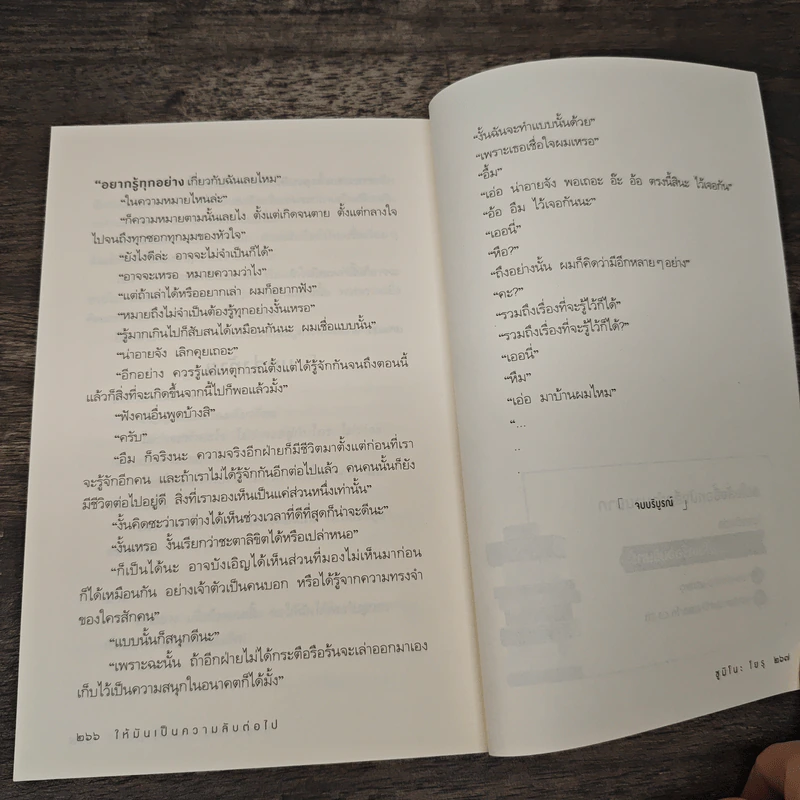 “อยากรู้ทุกอย่าง เกี่ยวกับฉันเลยไหม”
“ในความหมายไหนล่ะ”
“ก็ความหมายตามนั้นเลยไง ตั้งแต่เกิดจนตาย ตั้งแต่กลางใจ
ไปจนถึงทุกซอกทุกมุมของหัวใจ”
“ยังไงดีล่ะ อาจจะไม่จำเป็นก็ได้”
“อาจจะเหรอ หมายความว่าไง”
“แต่ถ้าเล่าได้หรืออยากเล่า ผมก็อยากฟัง”
“หมายถึงไม่จำเป็นต้องรู้ทุกอย่างงั้นเหรอ”
“รู้มากเกินไปก็สับสนได้เหมือนกันนะ ผมเชื่อแบบนั้น”
“น่าอายจัง เลิกคุยเถอะ”
“อีกอย่าง ควรรู้แค่เหตุการณ์ตั้งแต่ได้รู้จักกันจนถึงตอนนี้
แล้วก็สิ่งที่จะเกิดขึ้นจากนี้ไปก็พอแล้วมั้ง”
“ฟังคนอื่นพูดบ้างสิ”
“ครับ”
“อืม ก็จริงนะ ความจริงอีกฝ่ายก็มีชีวิตมาตั้งแต่ก่อนที่เรา
จะรู้จักอีกคน และถ้าเราไม่ได้รู้จักกันอีกต่อไปแล้ว คนคนนั้นก็ยัง
มีชีวิตต่อไปอยู่ดี สิ่งที่เรามองเห็นเป็นแค่ส่วนหนึ่งเท่านั้น”
“งั้นคิดซะว่าเราต่างได้เห็นช่วงเวลาที่ดีที่สุดก็น่าจะดีนะ”
“งั้นเหรอ งั้นเรียกว่าชะตาลิขิตได้หรือเปล่าหนอ”
“ก็เป็นได้นะ อาจบังเอิญได้เห็นส่วนที่มองไม่เห็นมาก่อน
ก็ได้เหมือนกัน อย่างเจ้าตัวเป็นคนบอก หรือได้รู้จากความทรงจำ
ของใครสักคน”
“แบบนั้นก็สนุกดีนะ”
“เพราะฉะนั้น ถ้าอีกฝ่ายไม่ได้กระตือรือร้นจะเล่าออกมาเอง
เก็บไว้เป็นความสนุกในอนาคตก็ได้มั้ง”
๒๖๖ ให้มันเป็นความลับต่อไป
“งั้นฉันจะทำแบบนั้นด้วย”
“เพราะเธอเชื่อใจผมเหรอ”
“อื้ม”
“เอ่อ น่าอายจัง พอเถอะ อ๊ะ อ้อ ตรงนี้สินะ ไว้เจอกัน”
“อ้อ อืม ไว้เจอกันนะ”
“เออนี่”
“หือ?”
“ถึงอย่างนั้น ผมก็คิดว่ามีอีกหลายๆ อย่าง”
“คะ?”
“รวมถึงเรื่องที่จะรู้ไว้ก็ได้”
“รวมถึงเรื่องที่จะรู้ไว้ก็ได้?”
“เออนี่”
“หืม”
“เอ่อ มาบ้านผมไหม”
“...
..
จบบริบูรณ์
ซูมิโนะ โยรุ ๒๖๗